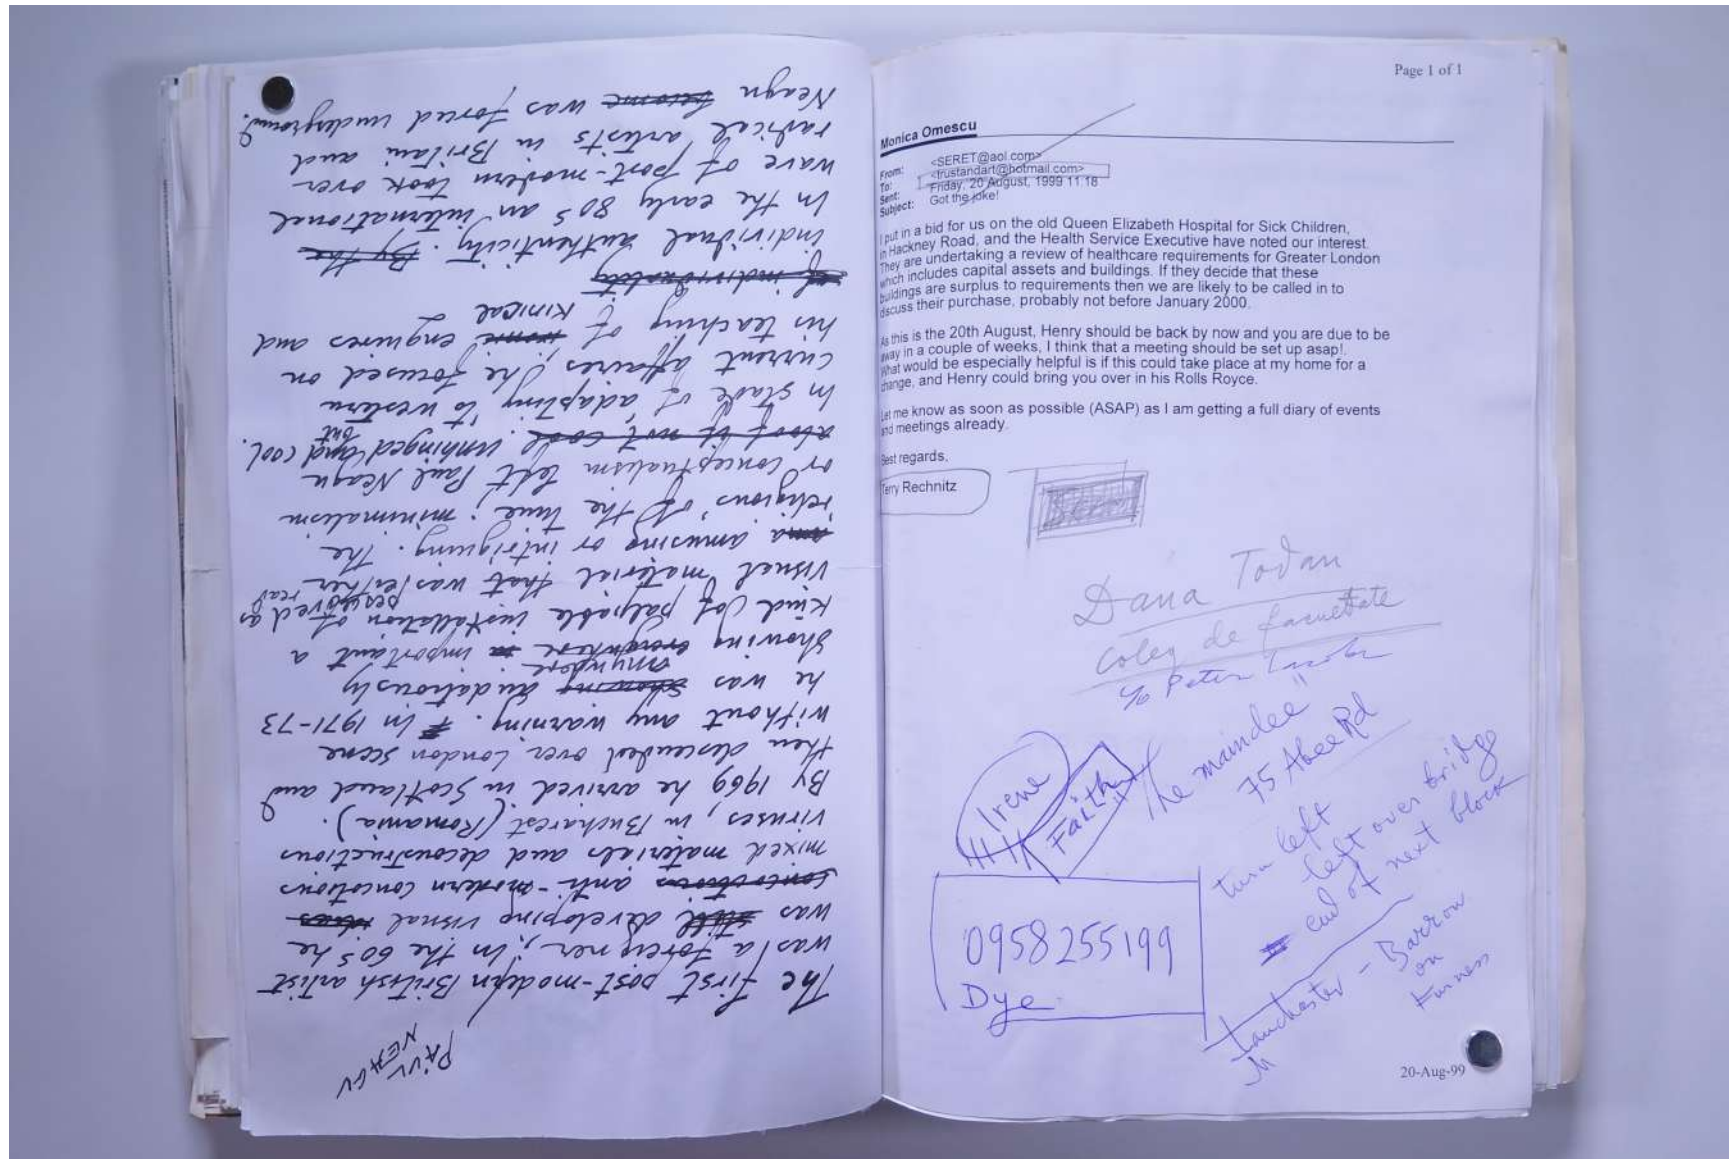 PAUL
NEAGU
The first post-modern British artist
was a foreigner; In the 60s he
was still developing visual
anti-modern concotions
mixed materials and deconstructions
viruses, in Bucharest (Romania).
By 1969 he arrived in Scotland and
then descended over London scene
without any warning. In 1971-73
he was showing audatiously
anywhere
showing everywhere important a
kind of palpable installation of
real
visual material that was either
amusing or intriguing. The
'religions' of the time; minimalism
or conceptualism left Paul Neagu
but
aloof if not cool. Unhinged and cool.
In stade of adapting to western
current affaires, he focused on
his teaching of ironic enquires and
kinical
of individuality
individual authenticity. By the
In the early 80s an international
wave of post-modern took over
radical artists in Britain and
Neagu become was forced underground.
Page 1 of 1
Monica Omescu
From: <SERET@aol.com>
To: <trustandart@hotmail.com>
Sent: Friday, 20 August, 1999 11:18
Subject: Got the joke!
I put in a bid for us on the old Queen Elizabeth Hospital for Sick Children,
in Hackney Road, and the Health Service Executive have noted our interest.
They are undertaking a review of healthcare requirements for Greater London
which includes capital assets and buildings. If they decide that these
buildings are surplus to requirements then we are likely to be called in to
discuss their purchase, probably not before January 2000.
As this is the 20th August, Henry should be back by now and you are due to be
away in a couple of weeks, I think that a meeting should be set up asap!.
What would be especially helpful is if this could take place at my home for a
change, and Henry could bring you over in his Rolls Royce.
Let me know as soon as possible (ASAP) as I am getting a full diary of events
and meetings already.
Best regards,
Terry Rechnitz
Dana Todan
coleg de facultate
c/o Peter
Irene
Faith
"The maindee"
75 Abee Rd
turn left
left over bridge
end of next block
0958255199
Dye
Manchester - Barrow
on
Furness
20-Aug-99